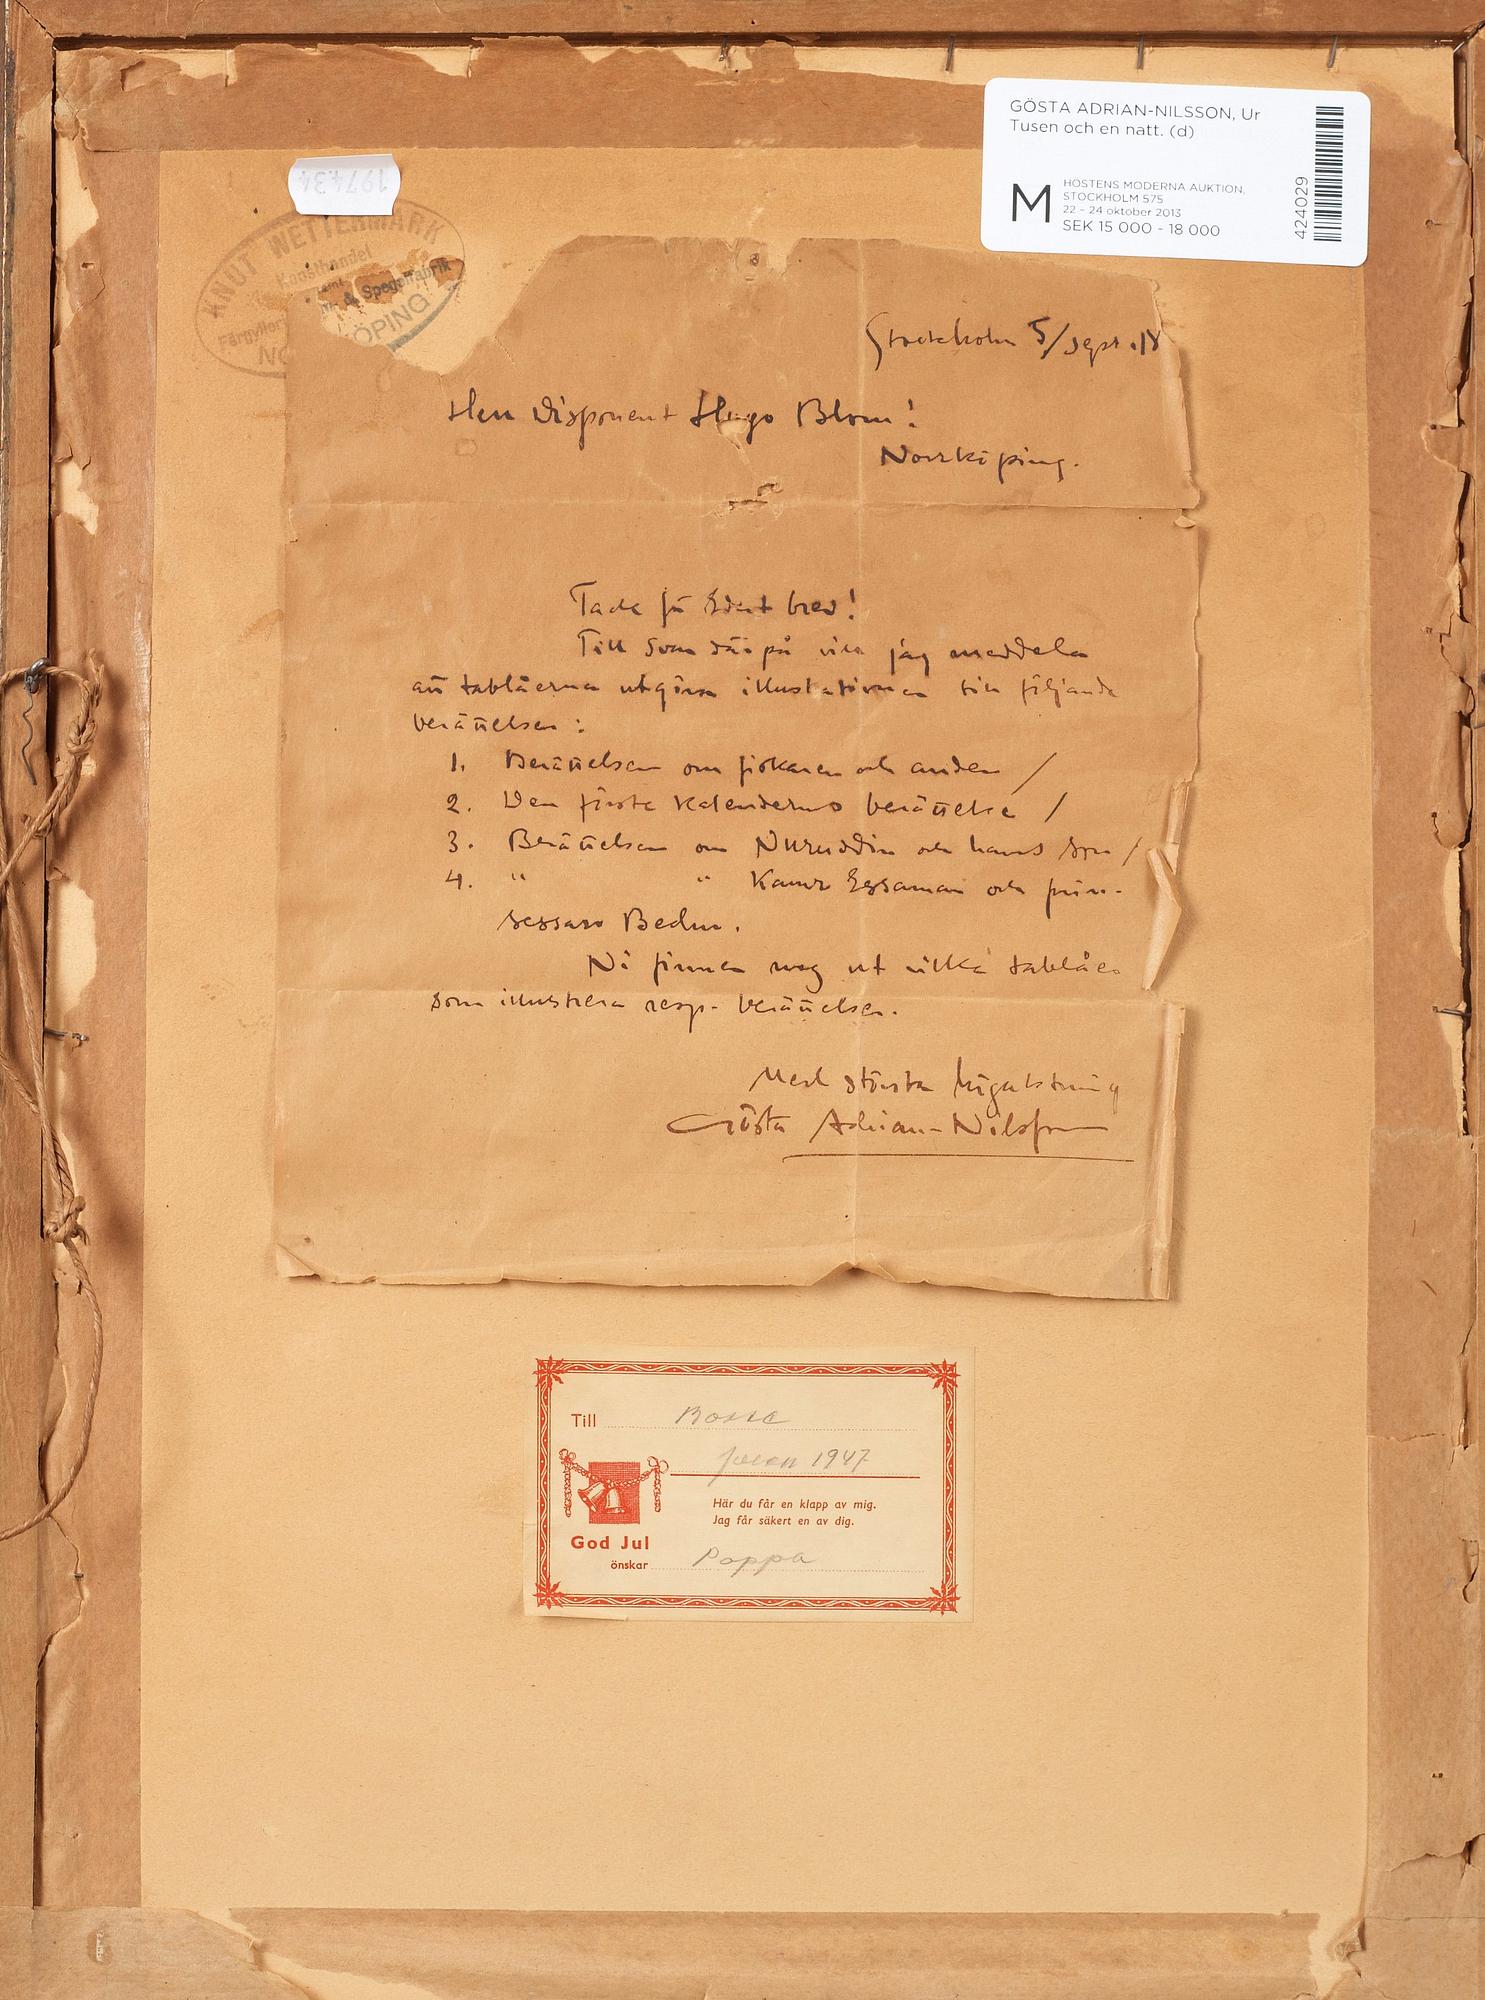 GÖSTA ADRIAN-NILSSON, Ur
Tusen och en natt. (d)
M
HÖSTENS MODERNA AUKTION,
STOCKHOLM 575
22 – 24 oktober 2013
SEK 15 000 - 18 000
424029
197434
KNUT WETTERMARK
Konsthandel
samt
& Spegelfabrik
Stockholm 5/sept. 18
Herr Disponent Hugo Blom!
Norrköping.
Tack för Edert brev!
Till svar därpå vill jag meddela
att tablåerna utgöra illustrationer till följande
berättelser:
1. Berättelsen om fiskaren och anden /
2. Den förste Kalenderns berättelse /
3. Berättelsen om Nureddin och hans son /
4. " " Kamr Essaman och prin-
sessan Bedur.
Ni finner nog ut vilka tablåer
som illustrera resp. berättelser.
Med största högaktning
Gösta Adrian-Nilsson
Till Bosse
Julen 1947
Här du får en klapp av mig.
Jag får säkert en av dig.
God Jul
önskar Pappa